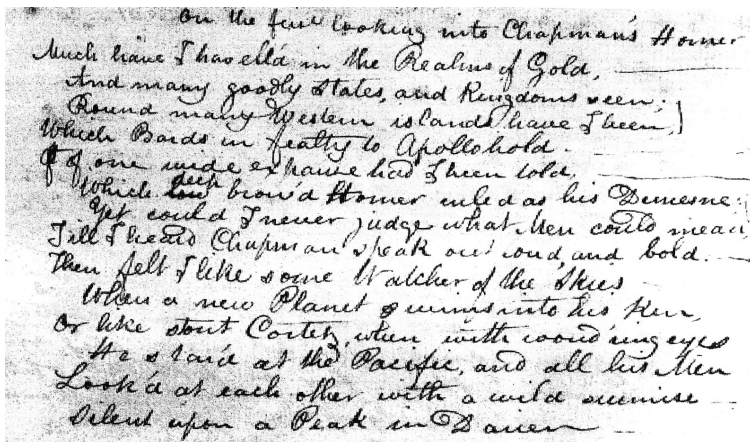 On the first looking into Chapman's Homer
Much have I travell'd in the Realms of Gold,
And many goodly States, and Kingdoms seen;
Round many Western islands have I been,
Which Bards in fealty to Apollo hold.
Of one wide expanse had I been told,
Which low deep brow'd Homer ruled as his Demesne;
Yet could I never judge what Men could mean,
Till I heard Chapman speak out loud, and bold.
Then felt I like some Watcher of the Skies
When a new Planet swims into his Ken,
Or like stout Cortez, when with wond'ring eyes
He star'd at the Pacific, and all his Men
Look'd at each other with a wild surmise
Silent upon a Peak in Darien